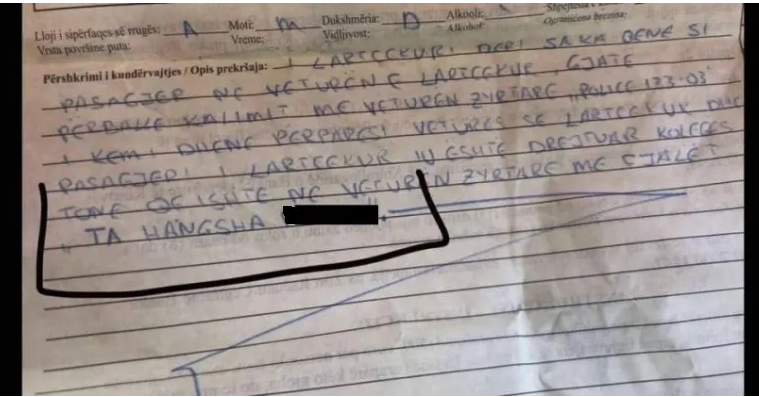 Lloji i sipërfaqes së rrugës: A Moti: M Dukshmëria: D Alkooli:
Vrsta površine puta: Vreme: Vidljivost: Alkohol: Ograničena brzina:
Përshkrimi i kundërvajtjes / Opis prekršaja: I LARTCEKURI DERI SA KA QENË SI
PASAGJER NE VETURËN E LARTCEKUR, GJATË
PËRBALLË KALIMIT ME VETUREN ZYRTARE "POLICE 123-03"
I KEMI DHENE PËRPARESI VETURES SË LARTCEKUR DHE
PASAGJERI I LARTCEKUR IU ËSHTË DREJTUAR KOLEGES
TONË QE ISHTE NË VETUREN ZYRTARE ME FJALËT
" TA HANGSHA